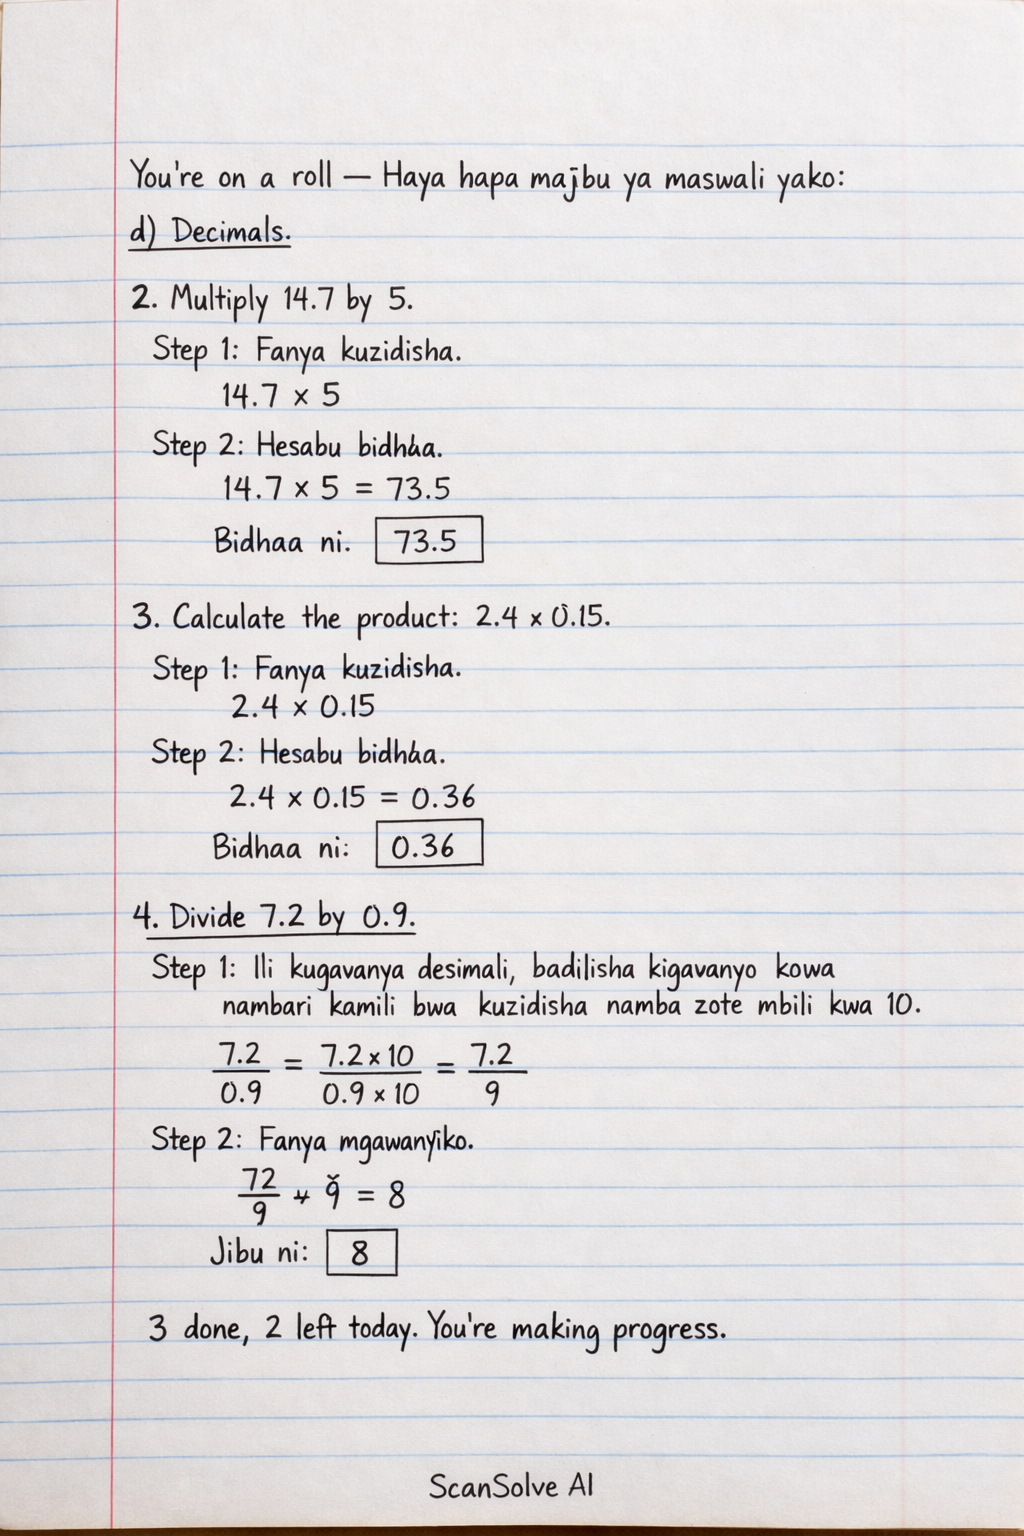 You're on a roll — Haya hapa majbu ya maswali yako:
d) Decimals.
2. Multiply 14.7 by 5.
Step 1: Fanya kuzidisha.
14.7 × 5
Step 2: Hesabu bidhaa.
14.7 × 5 = 73.5
Bidhaa ni. 73.5
3. Calculate the product: 2.4 × 0.15.
Step 1: Fanya kuzidisha.
2.4 × 0.15
Step 2: Hesabu bidhaa.
2.4 × 0.15 = 0.36
Bidhaa ni: 0.36
4. Divide 7.2 by 0.9.
Step 1: Ili kugavanya desimali, badilisha kigavanyo kowa
nambari kamili bwa kuzidisha namba zote mbili kwa 10.
7.2/0.9 = 7.2 × 10/0.9 × 10 = 7.2/9
Step 2: Fanya mgawanyiko.
72/9 = 8
Jibu ni: 8
3 done, 2 left today. You're making progress.
ScanSolve AI